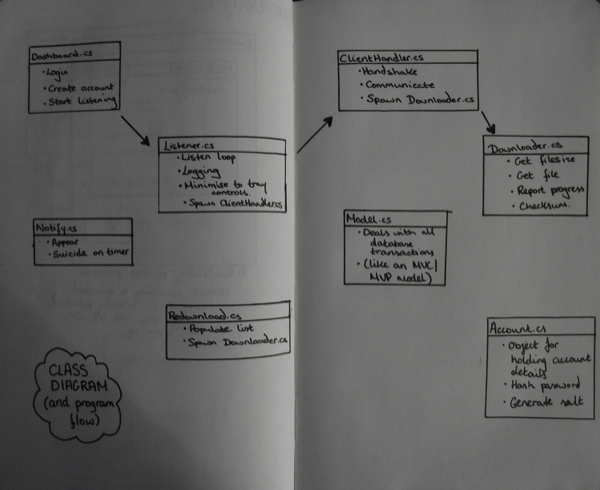 Dashboard.cs
• Login
• Create account
• Start listening
Listener.cs
• Listen loop
• Logging
• Minimise to tray
controls.
• Spawn ClientHandler.cs
Notify.cs
• Appear
• Suicide on timer
Redownload.cs
• Populate list
• Spawn Downloader.cs
CLASS
DIAGRAM
(and program
flow)
ClientHandler.cs
• Handshake
• Communicate
• Spawn Downloader.cs
Downloader.cs
• Get filesize
• Get file
• Report progress
• Checksum.
Model.cs
• Deals with all
database
transactions
• (like an MVC/
MVP model)
Account.cs
• Object for
holding account
details
• Hash password
• Generate salt